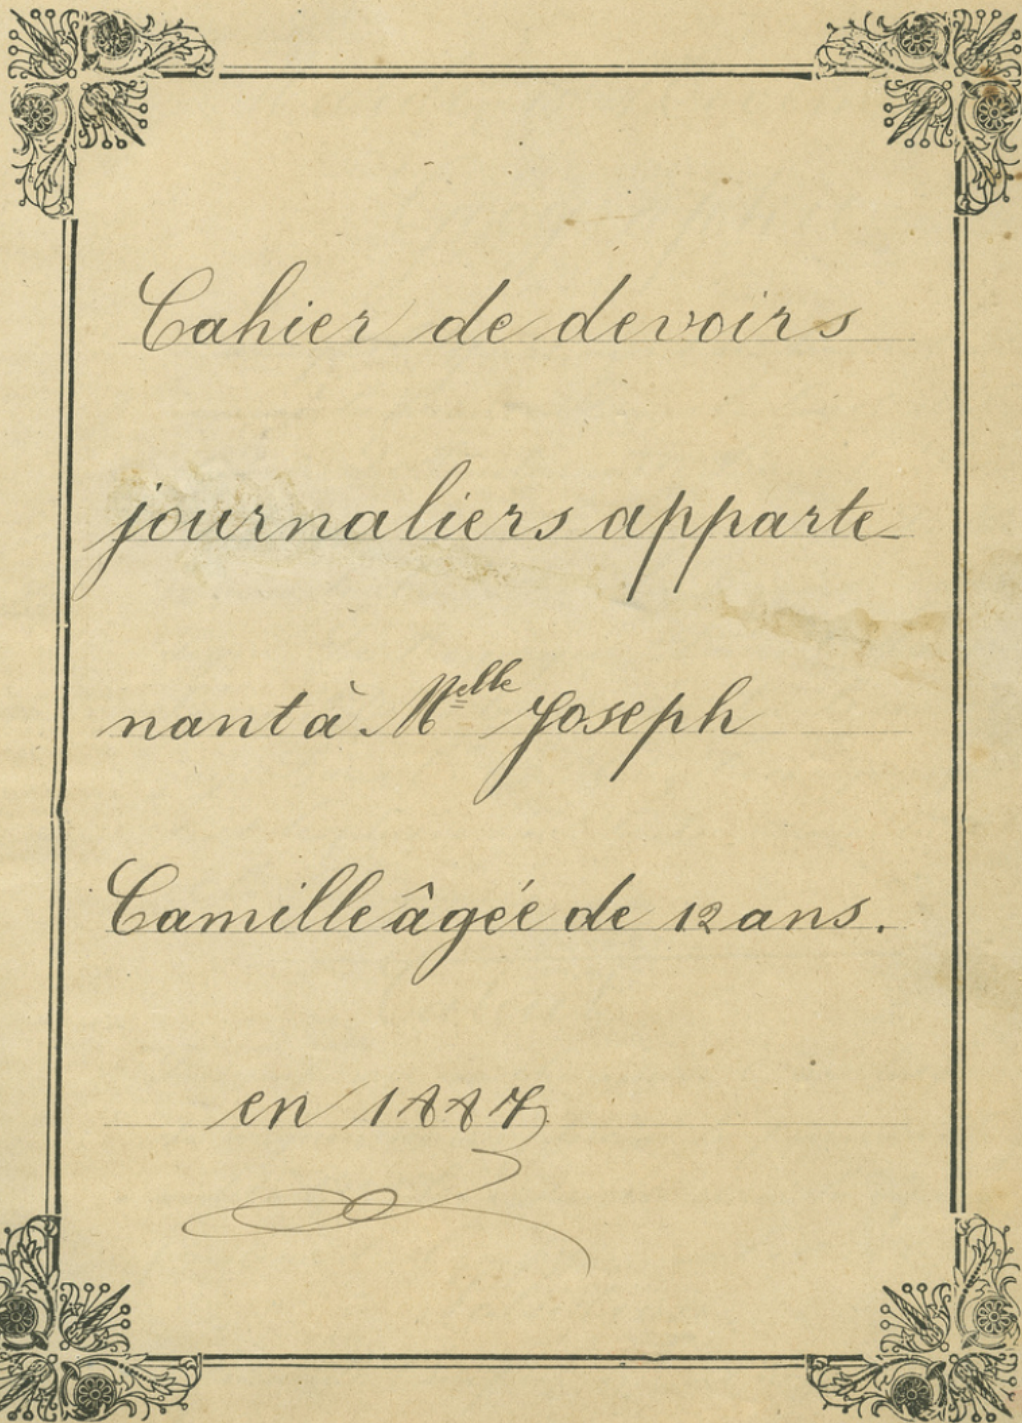 Cahier de devoirs
journaliers apparte
nant à Melle Joseph
Camille âgée de 12 ans.
en 1887